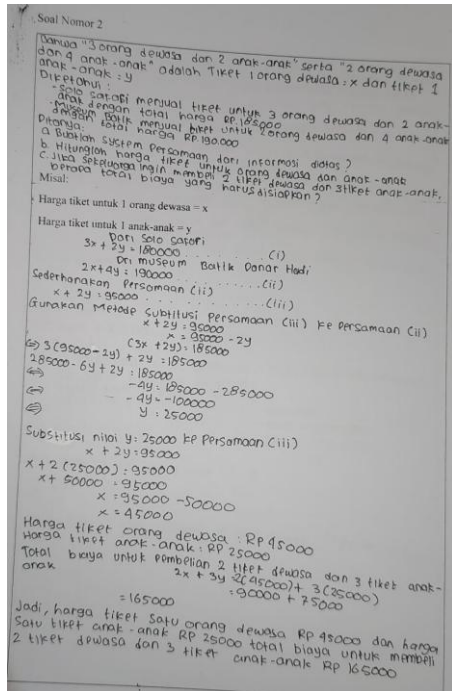 Soal Nomor 2
Bahwa "3 orang dewasa dan 2 anak-anak" serta "2 orang dewasa
dan 4 anak-anak" adalah Tiket 1 orang dewasa = x dan tiket 1
anak-anak = y
Diketahui :
- Solo safari menjual tiket untuk 3 orang dewasa dan 2 anak-
anak dengan total harga RP.185000
- Museum Batik menjual tiket untuk 2 orang dewasa dan 4 anak-anak
dengan total harga RP.190.000
Ditanya:
a. Buatlah system Persamaan dari informasi diatas?
b. Hitunglah harga tiket untuk orang dewasa dan anak-anak
c. Jika sekeluarga ingin membeli 2 tiket dewasa dan 3 tiket anak-anak,
berapa total biaya yang harus disiapkan?
Misal:
Harga tiket untuk 1 orang dewasa = x
Harga tiket untuk 1 anak-anak = y
Dari Solo Safari
3x + 2y = 180000 . . . . . . . . (i)
Dri museum Batik Danar Hadi
2x + 4y = 190000 . . . . . . . . (ii)
Sederhanakan Persamaan (ii)
x + 2y = 95000 . . . . . . . . . (iii)
Gunakan Metode Subtitusi Persamaan (iii) ke Persamaan (ii)
x + 2y = 95000
x = 95000 - 2y
(3x + 2y) = 185000
(⇔) 3(95000 - 2y) + 2y = 185000
285000 - 6y + 2y = 185000
(⇔) -4y = 185000 - 285000
(⇔) -4y = -100000
(⇔) y = 25000
Substitusi nilai y = 25000 ke Persamaan (iii)
x + 2y = 95000
x + 2 (25000) = 95000
x + 50000 = 95000
x = 95000 - 50000
x = 45000
Harga tiket orang dewasa : Rp 45000
Harga tiket anak-anak : RP 25000
Total biaya untuk pembelian 2 tiket dewasa dan 3 tiket anak-
anak
2x + 3y = 2(45000) + 3(25000)
= 90000 + 75000
= 165000
Jadi, harga tiket satu orang dewasa RP 45000 dan harga
satu tiket anak-anak RP 25000 total biaya untuk membeli
2 tiket dewasa dan 3 tiket anak-anak Rp 165000